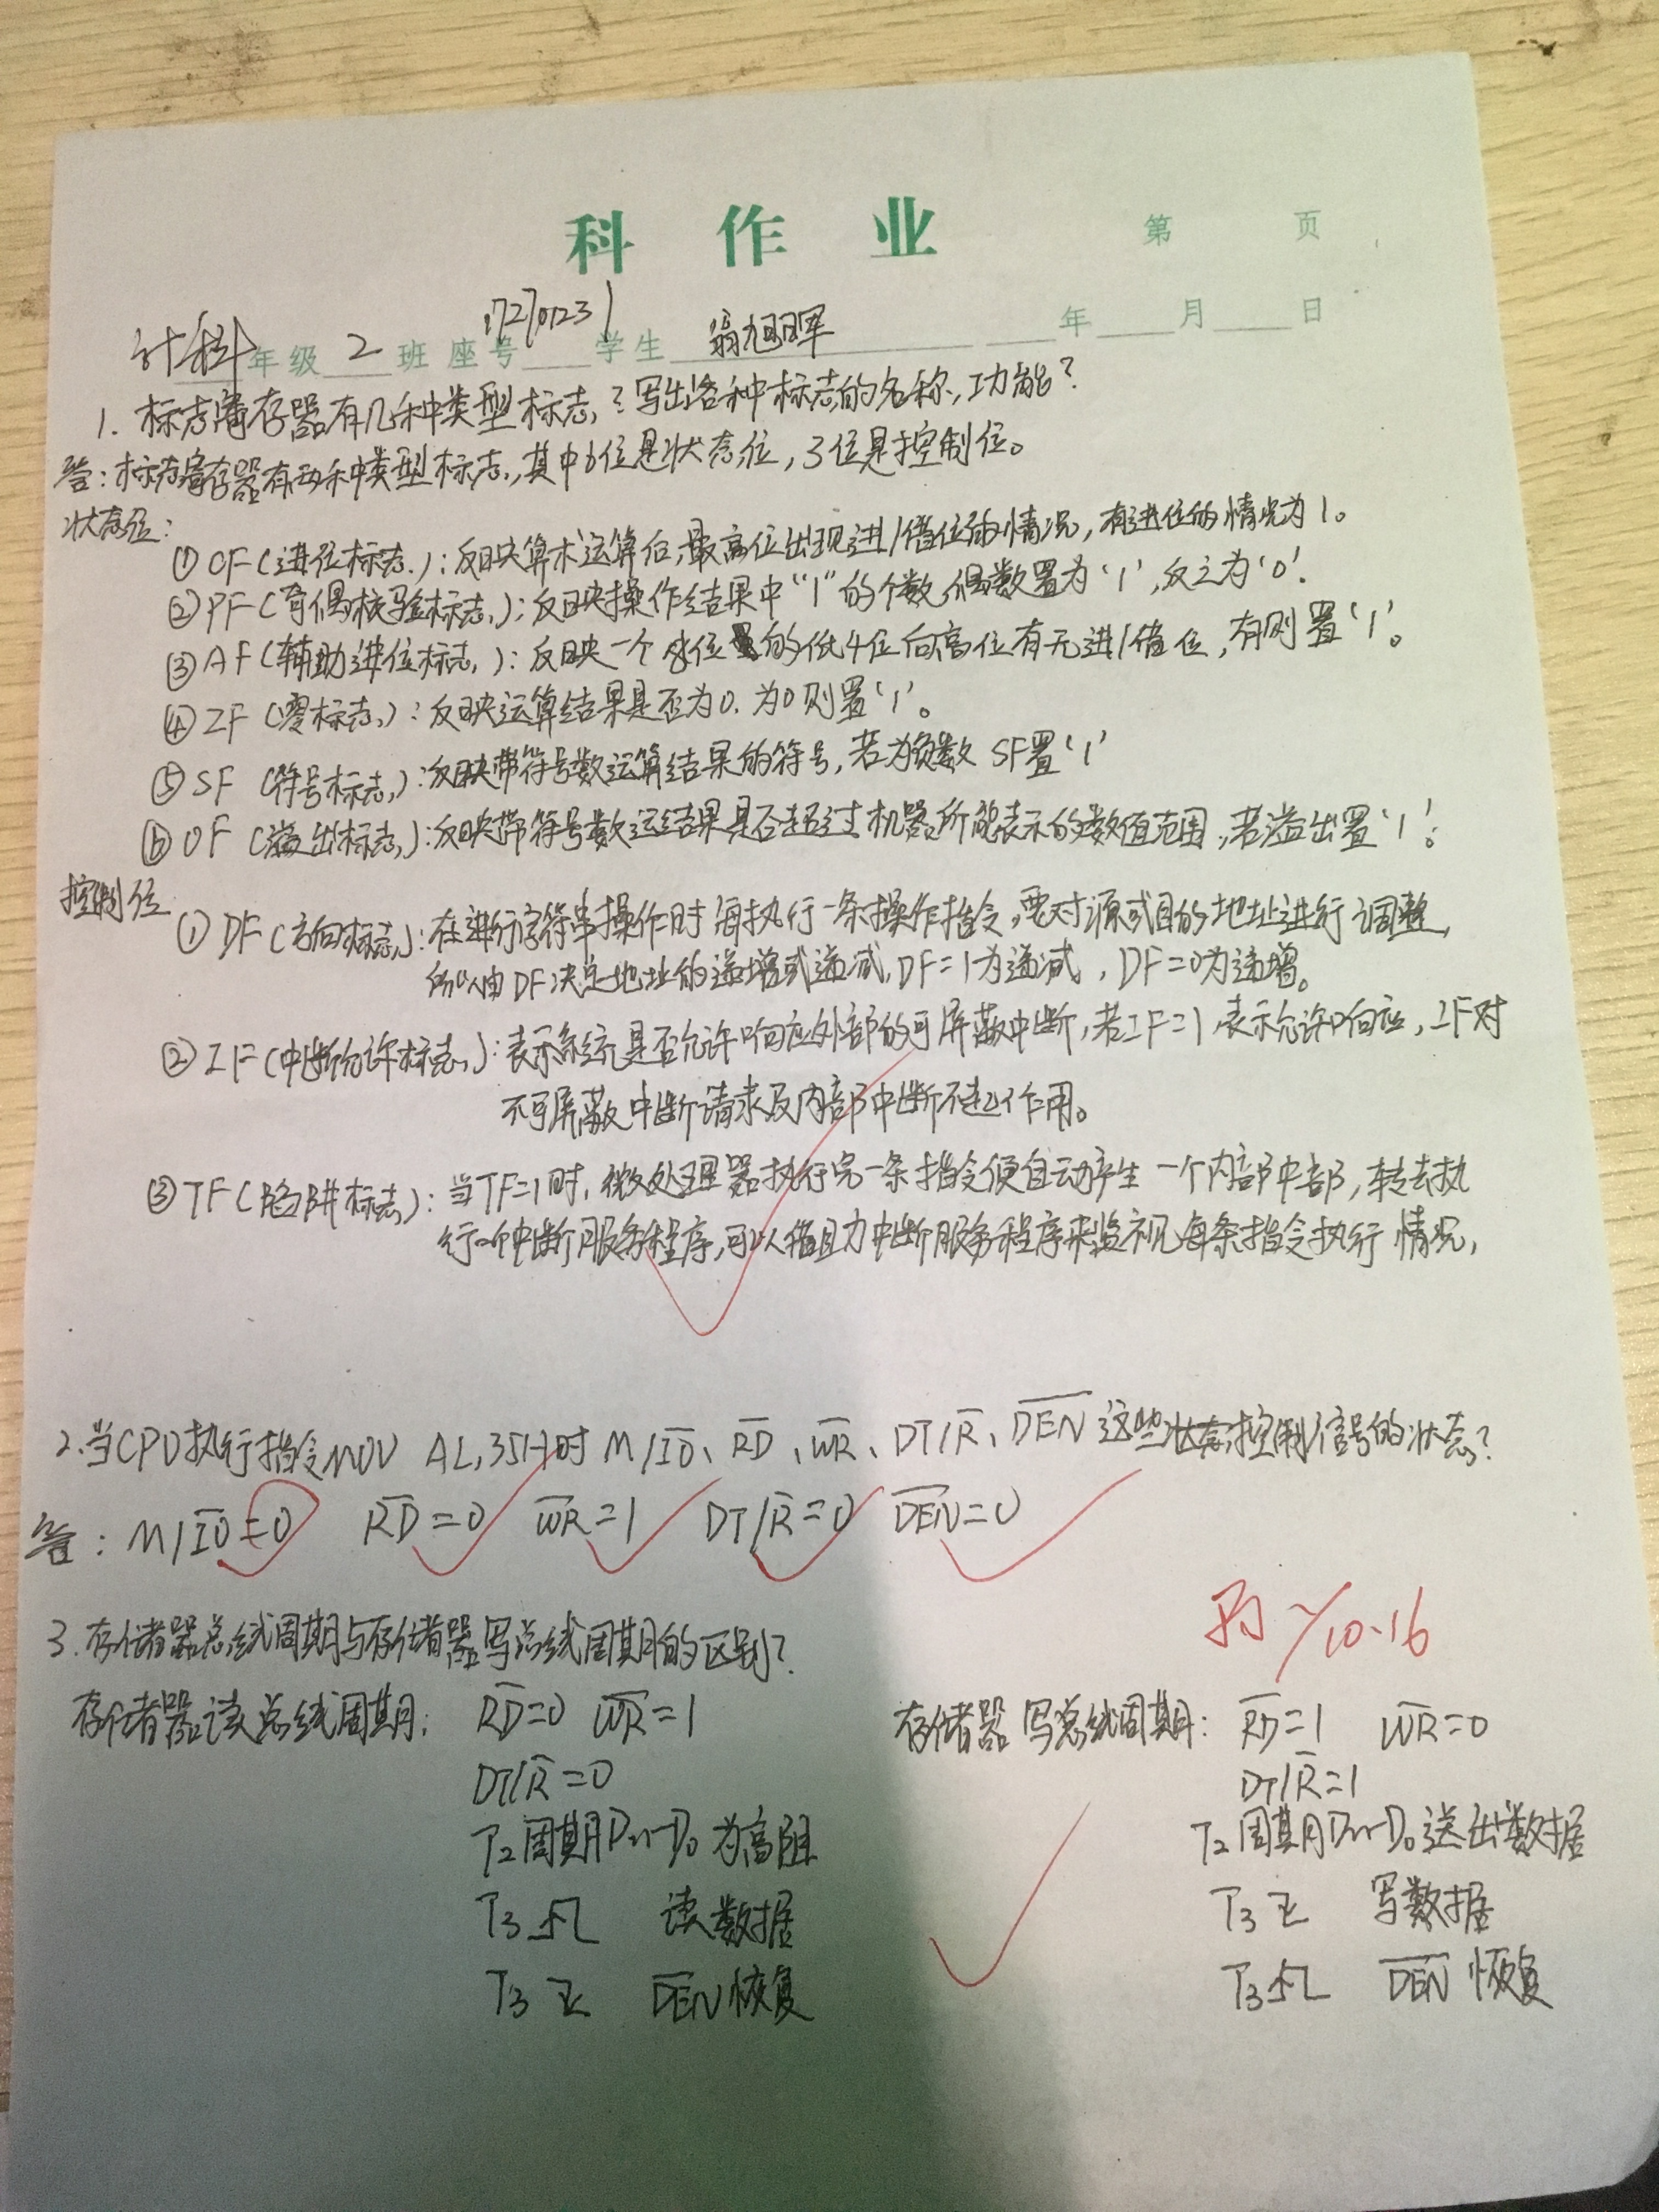 科 作 业 第 页
计科 年级 2 班 座号 17270123 学生 翁旭晖 年 月 日
1. 标志寄存器有几种类型标志,?写出各种标志的名称,功能?
答:标志寄存器有两种类型标志,其中6位是状态位,3位是控制位。
状态位:
① CF(进位标志):反映算术运算后,最高位出现进/借位的情况,有进位的情况为1。
② PF(奇偶校验标志):反映操作结果中“1”的个数,偶数置为‘1’,反之为‘0’.
③ AF(辅助进位标志):反映一个8位量的低4位向高位有无进/借位,有则置‘1’。
④ ZF(零标志):反映运算结果是否为0.为0则置‘1’。
⑤ SF(符号标志):反映带符号数运算结果的符号,若为负数 SF置‘1’
⑥ OF(溢出标志):反映带符号数运结果是否超过机器所能表示的数值范围,若溢出置‘1’。
控制位
① DF(方向标志):在进行字符串操作时 每执行一条操作指令,要对源或目的地址进行调整,
所以由DF决定地址的递增或递减,DF=1为递减,DF=0为递增。
② IF(中断允许标志):表示系统是否允许响应外部的可屏蔽中断,若IF=1,表示允许响应,IF对
不可屏蔽中断请求及内部中断不起作用。
③ TF(陷阱标志):当TF=1时,微处理器执行完一条指令便自动产生一个内部中部,转去执
行一个中断服务程序,可以借助中断服务程序来监视每条指令执行情况,
2.当CPU执行指令MOV AL,35H时 M/I̅O̅、R̅D̅、W̅R̅、DT/R̅、D̅E̅N̅ 这些状态控制信号的状态?
答:M/I̅O̅=0 R̅D̅=0 W̅R̅=1 DT/R̅=0 D̅E̅N̅=0
10.16
3.存储器总线周期与存储器写总线周期的区别?
存储器读总线周期: R̅D̅=0 W̅R̅=1 存储器写总线周期: R̅D̅=1 W̅R̅=0
DT/R̅=0 DT/R̅=1
T2周期 D0为高阻 T2周期 D0送出数据
T3 读数据 T3 写数据
T3 D̅E̅N̅恢复 T3 D̅E̅N̅恢复